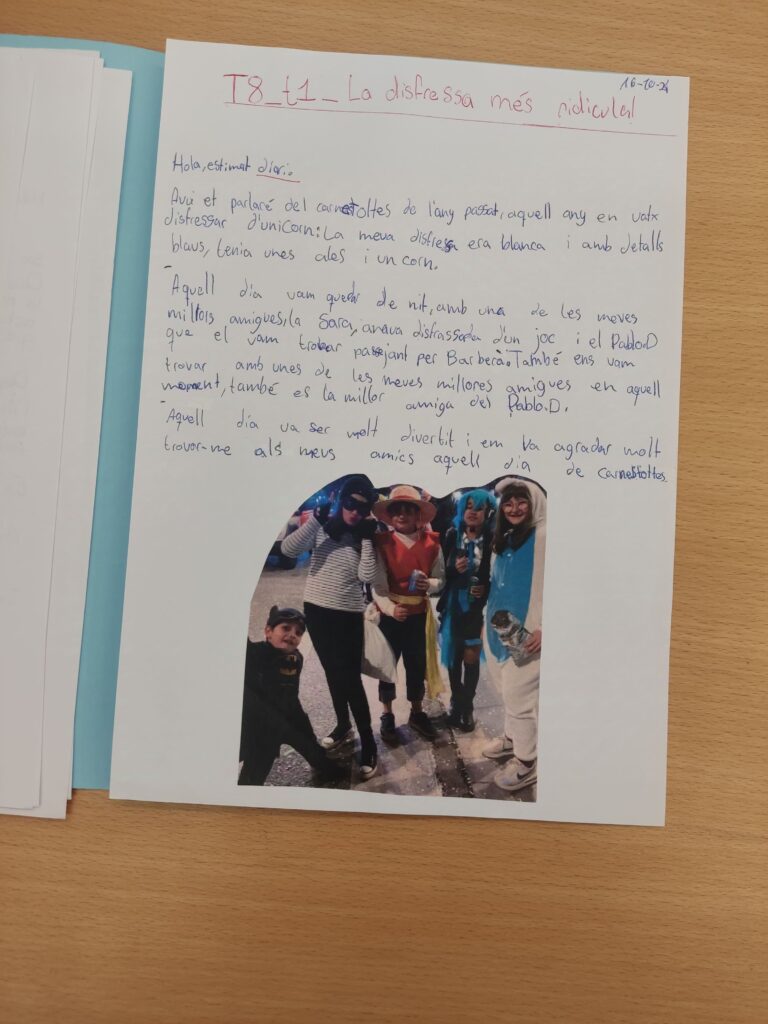 16-10-24
T8_t1_La disfressa més ridicula!
Hola, estimat diari.
Avui et parlaré del carnestoltes de l'any passat, aquell any en vatx
disfressar d'unicorn: La meva disfressa era blanca i amb detalls
blaus, tenia unes ales i un corn.
Aquell dia vam quedar de nit, amb una de les meves
millors amigues, la Sara, anava disfrassada d'un joc i el Pablo.D
que el vam trobar passejant per Barberà. També ens vam
trovar amb unes de les meves millores amigues en aquell
moment, també es la millor amiga del Pablo.D.
Aquell dia va ser molt divertit i em va agradar molt
trovar-me als meus amics aquell dia de carnestoltes.